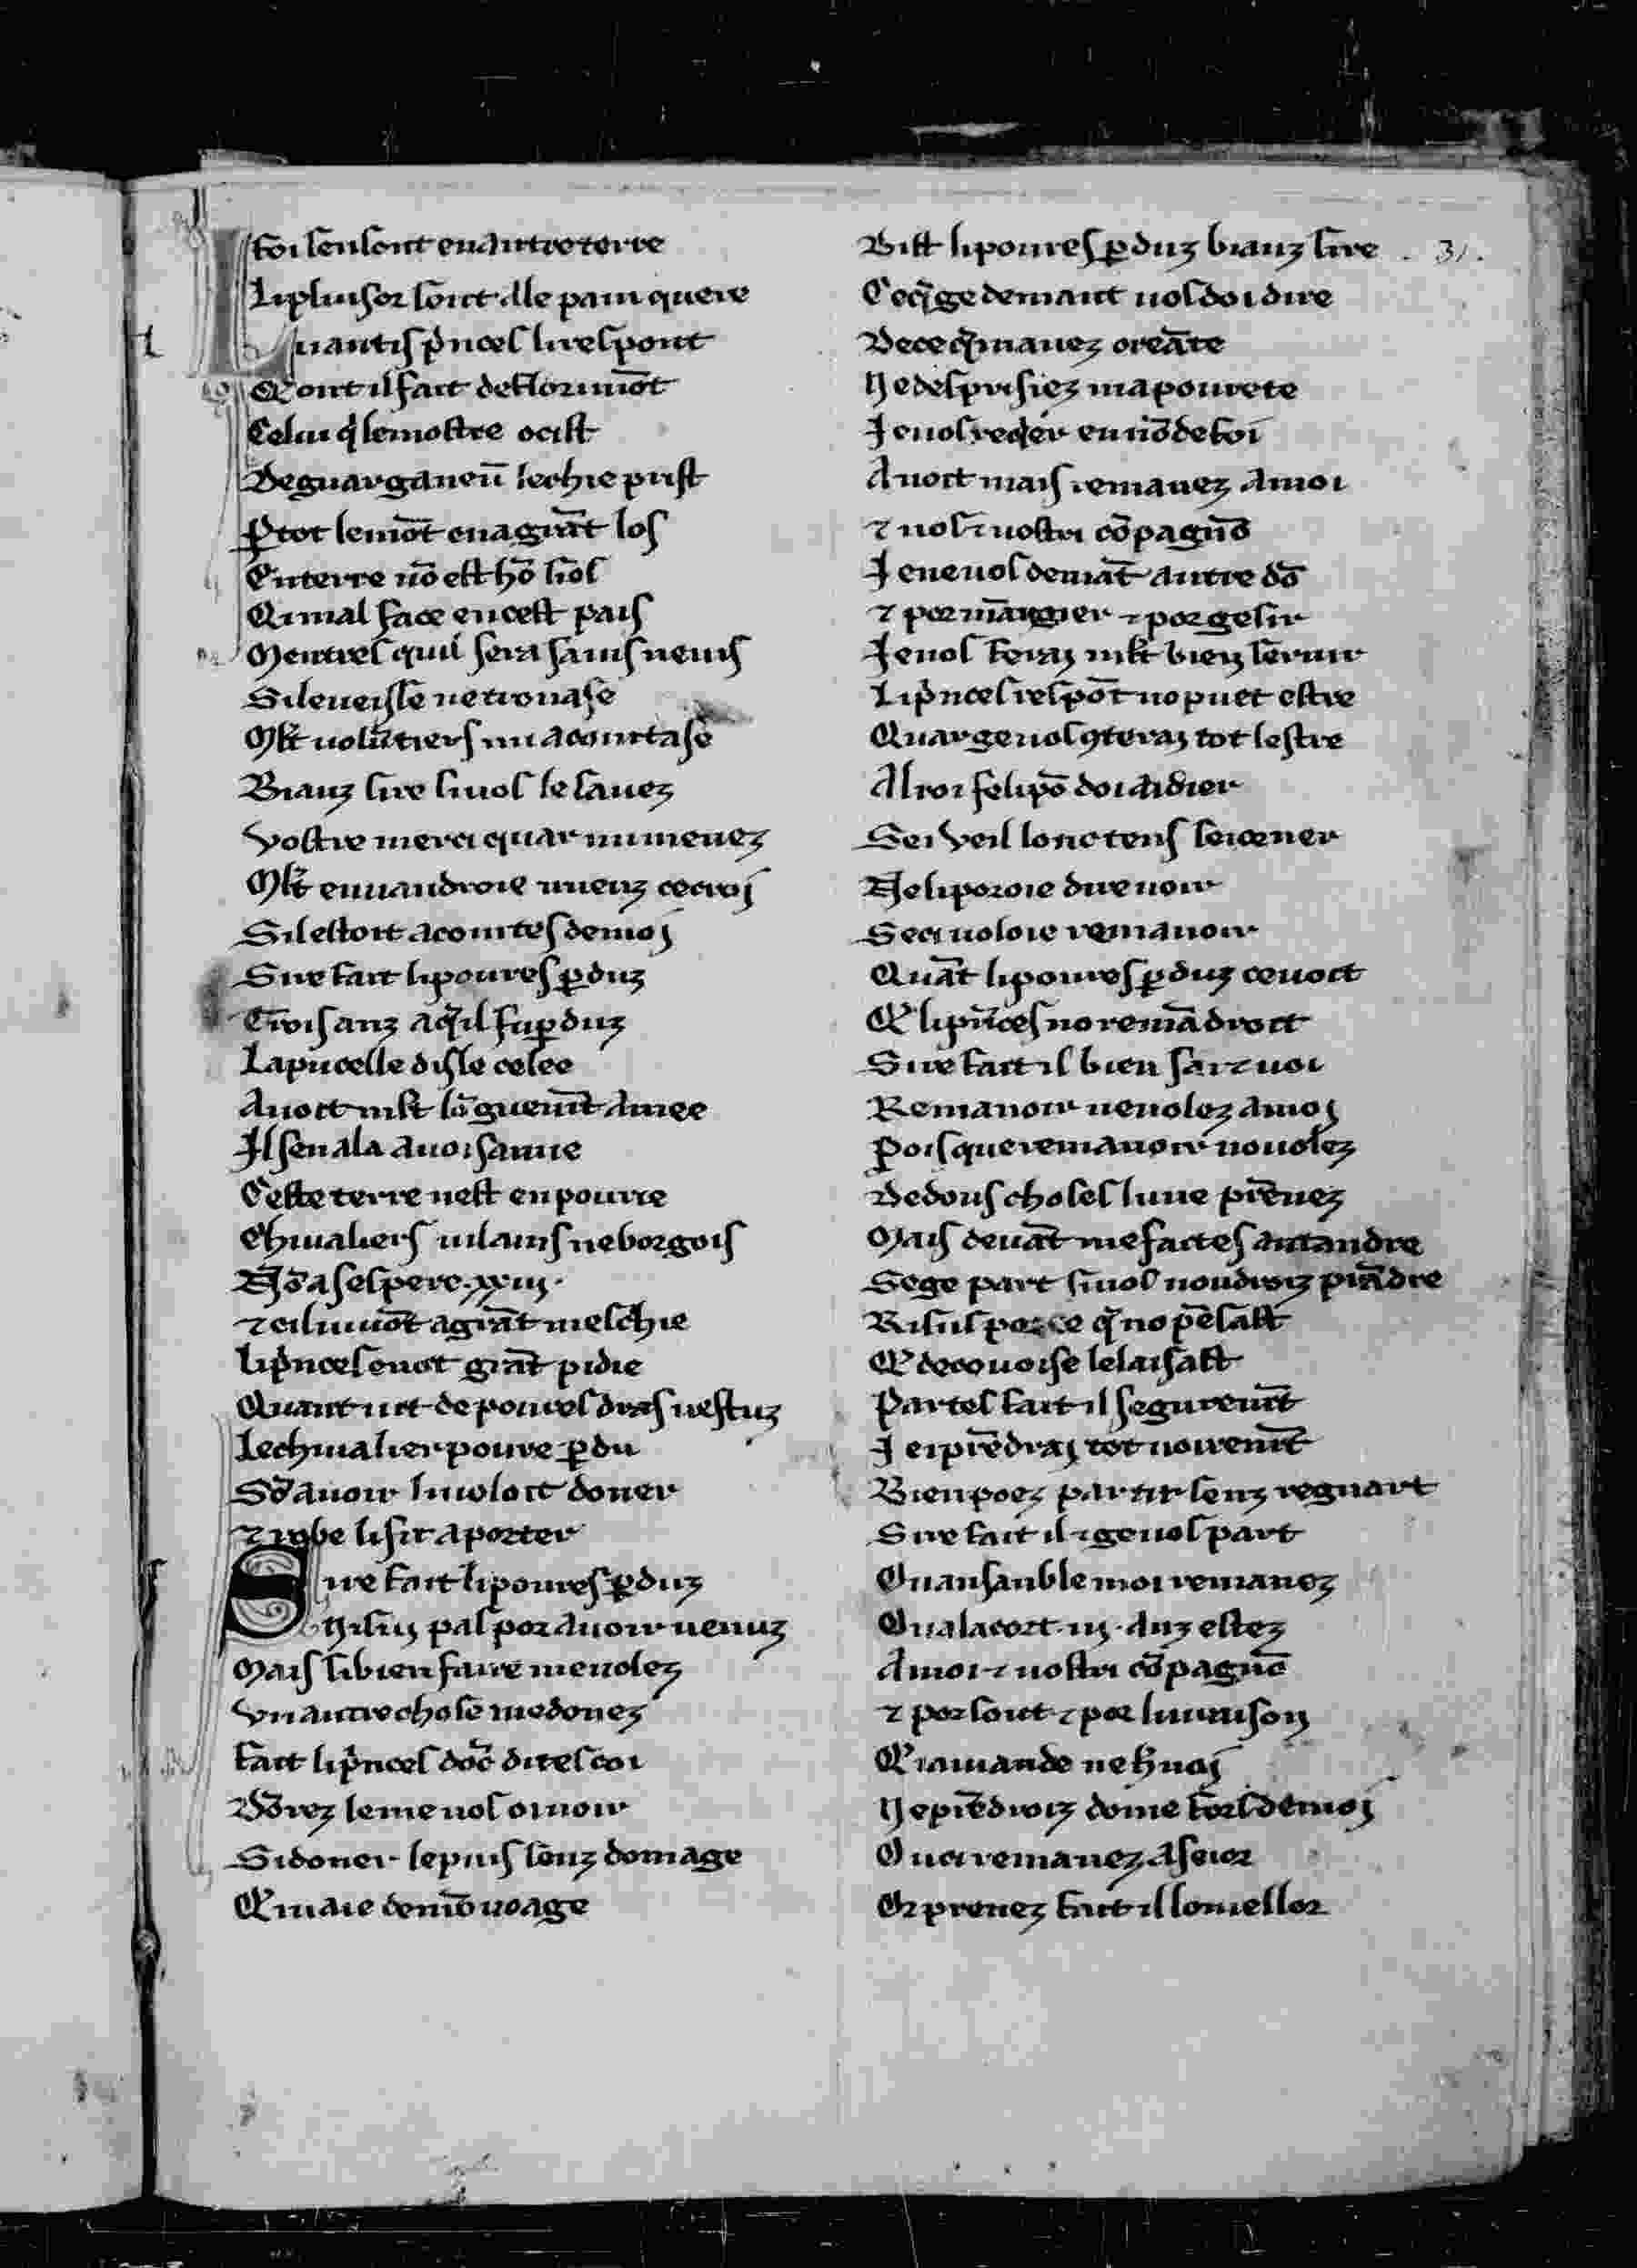 Foi sen sont en autre terre
Li plusor sont ale pain quere
Quant is p̃nces li respont
Q ont il fait de Florimõt
Celui q̃ le mostre ocist
De guarganeũ lechie prist
P tot le mõt en a grãt los
En terre nõ est hõ si os
Qi mal face en cest pais
Mentres quil sera sains ne uis
Si le ueisse ne trouase
Mlt uolũtiers mi acointase
Biauz sire si uos le sauez
Vostre merci quar mi menez
Mlt en uandroie mienz ce croi
Sil estoit acointes de moi
Sire fait li poures pduz
Trois anz a q̃ il fu pduz
La pucelle dis le celee
Auoit mlt lõguemĩt amee
Il sen ala a uoisanne
Ceste terre nest en pourre
Chiualiers uilains ne borgois
Ñ õ a sespere .xxiii.
⁊ cil uiuõt a grãt meschie
li p̃nces en ot grãt pidie
Quant uit de poures dras uestuz
Le chiualier poure pdu
Sõ auoir li uoloit doner
⁊ robe li fit aporter
Sire fait li poures pduz
Ni sui pas por auoir uenuz
Mais si bien faire me uolez
Vn autre chose me donez
Fait li p̃nces dõc dites coi
Võrez le me uos o auoir
Si doner le puis senz domage
Q maie de mõ uoage
Dist li poures pduz biauz sire . 31.
Ce q̃ ge demant uos doi dire
De ce q̃ mauez creãte
Ne desprisiez ma pourete
Je uos reqer en nõ de foi
Anoit mais remanez a moi
⁊ uos ⁊ uostri cõpagnõ
Je ne uos demãt autre dõ
⁊ por mãngier ⁊ por gesir
Je uos feraz mlt bien seruir
Li p̃nces respõt no puet estre
Quar ge uos 9teraz tot lestre
Al roi felipõ doi aidier
Se i veil lonc tens seiorner
Ne li poroie dire uoir
Se ci uoloie remanoir
Quãt li poures pduz ce uoit
Q li p̃nces no remãdroit
Sire fait il bien sai ⁊ uoi
Remanoir ne uolez a moi
Pois que remanoir no uolez
De dous choses lune prẽnez
Mais deuãt me faites antandre
Se ge part si uos uoudroiz prãdre
Ri sus por ce q̃ no pẽsast
Q de couoise le laisast
Partes fait il segurenĩt
Je i prẽdraz tot uoirenĩt
Bien poez partir senz reguart
Sire fait il ⁊ ge uos part
O uansanble moi remanez
O ua la cort .iij. anz estez
A moi ⁊ uostri cõpagnõ
⁊ por sout ⁊ por liuraison
Q ia mande ne
Ne prẽdroiz dome fors de moi
O uci remanez a seior
Or prenez fait il lo mellor